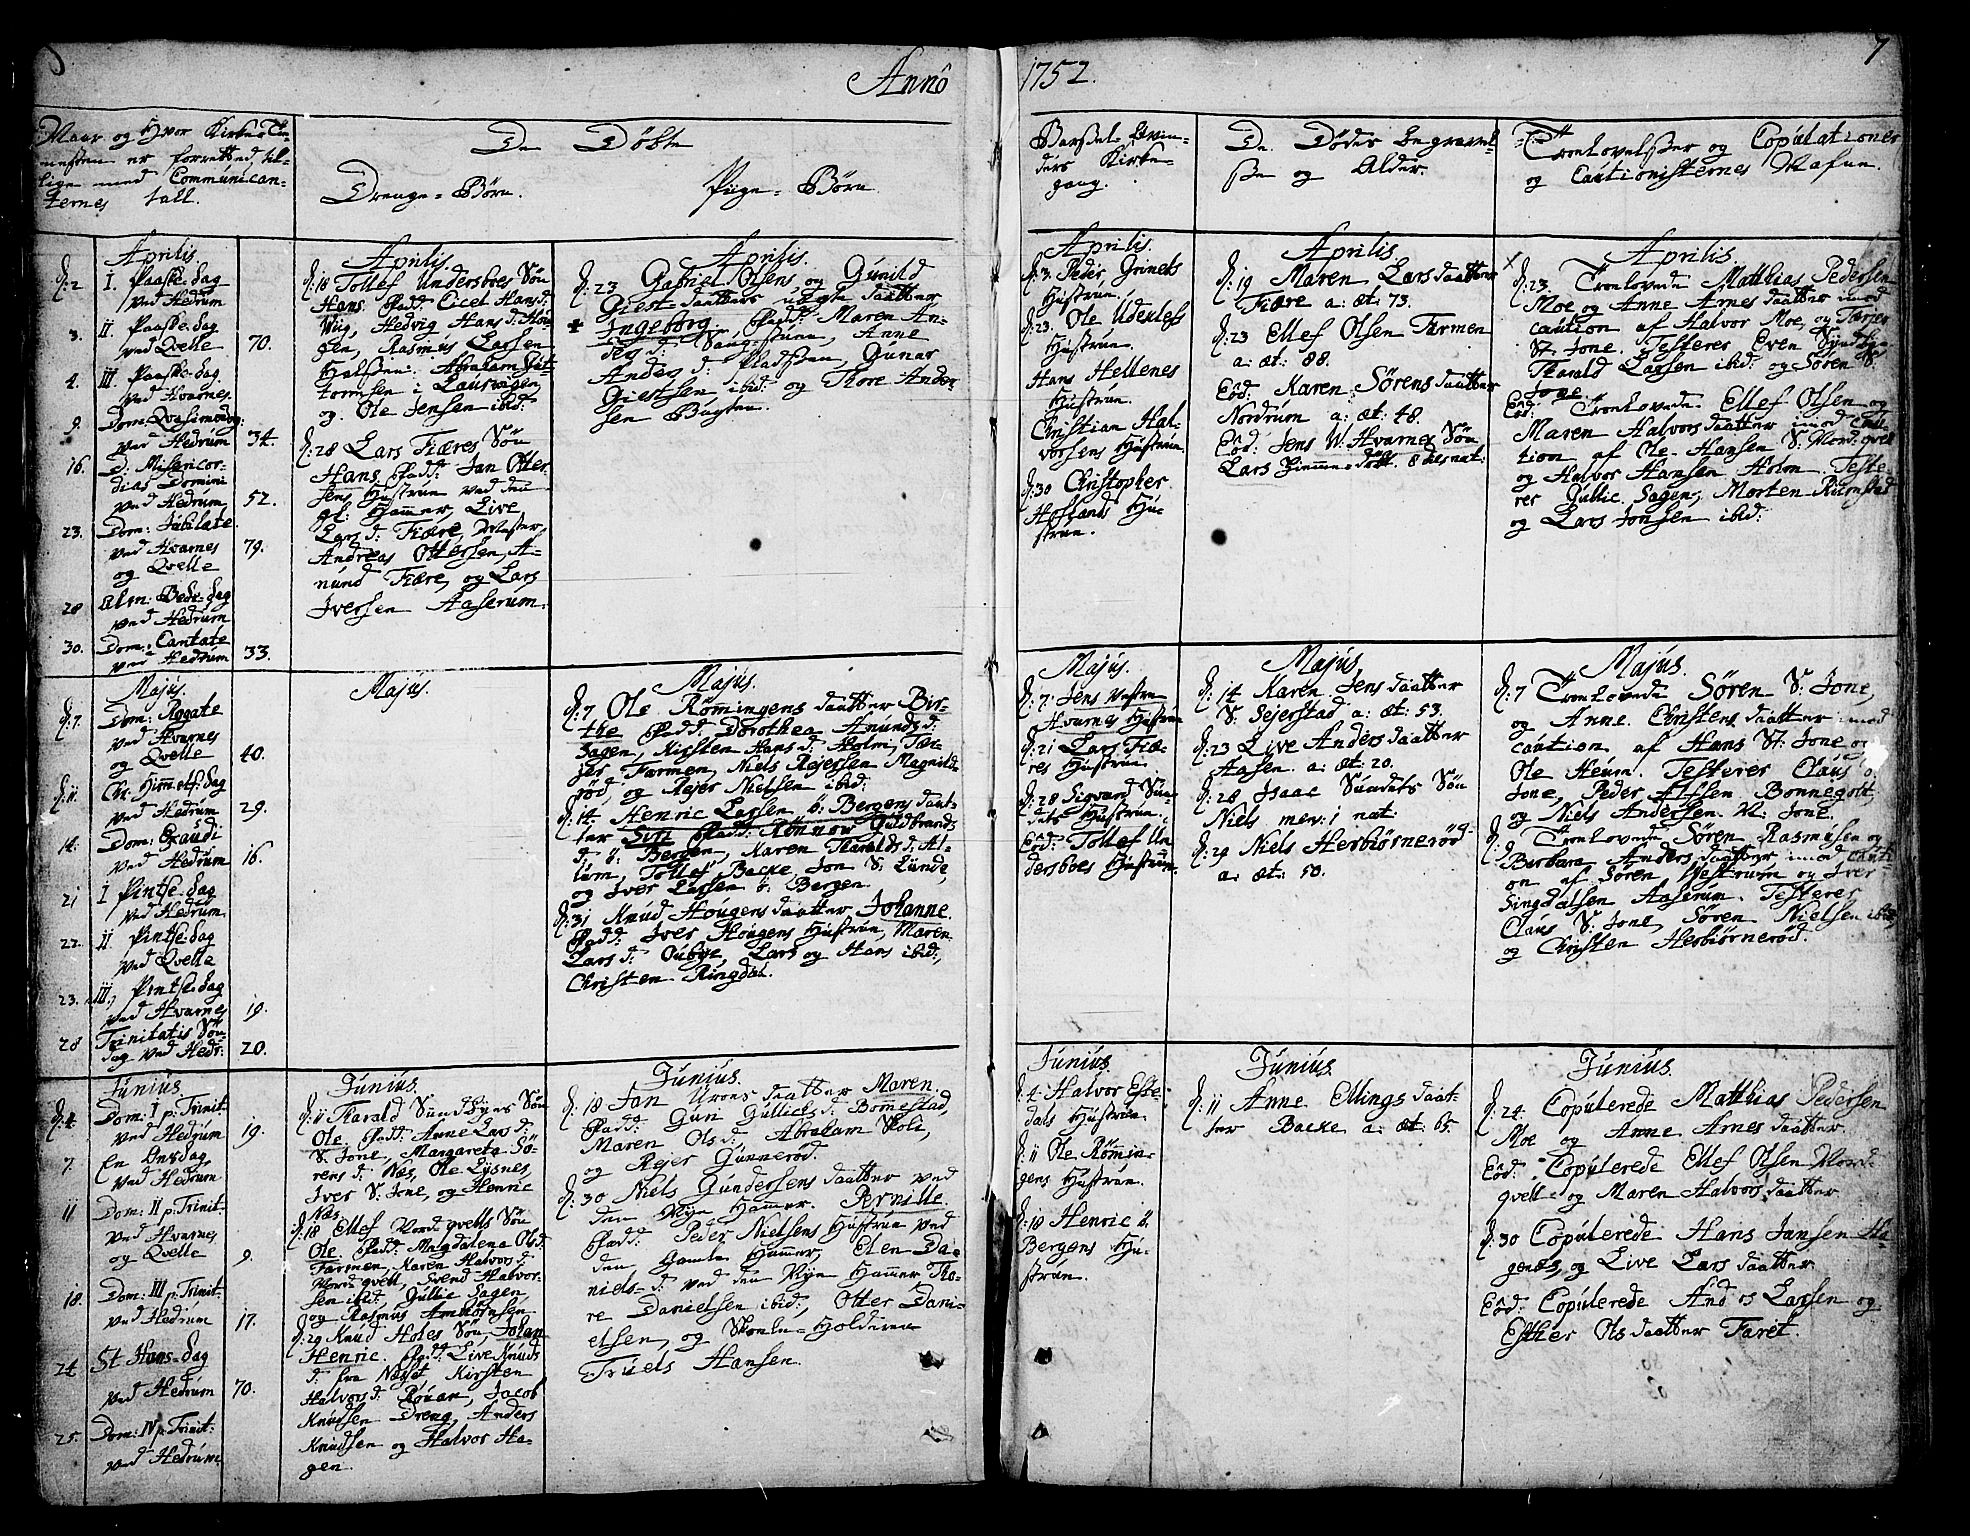 Anno 1752.
7
Naar og Hvor Kirke-Tie-
nesten er forrettet, til-
lige med Communican-
ternes tall.
De Døbte
Drenge-Børn.
Piige-Børn.
Barsel-Qvin-
ders Kirke-
gang.
De Dødes begravel-
ße og Alder.
Troelovelßer og Copulationer
og Cautionisternes Nafne.
Aprilis.
d: 2 I. Paaske-dag
ved Hedrum
3. II Paaske-dag
ved Qvelle 70.
4. III Paaske-dag
ved Hvarnes
9. Dom: Qvasimodog:
ved Hedrum 34.
16. D: Misericor-
dias Domini
ved Hedrum 52.
23. Dom: Jubilate
ved Hvarnes 79.
og Qvelle
28 Alm: Bede-dag
ved Hedrum
30. Dom: Cantate
ved Hedrum 33.
Aprilis.
d: 18 Tollef Undersboes Søn
Hans. fadd: Cicel Hansd:
Wiig, Hedvig Hans d: Hou-
gen, Rasmus Larsen
Halßen, Abraham
tormsen i Laurvigen,
og Ole Jensen ibid:
d: 28 Lars Fiæres Søn
Hans. fadd: Jan Otter-
sens Hustrue ved den
gl: Hammer, Live
Lars d: Fiære,
Andreas Ottersen, A-
mund Fiære, og Lars
Iversen Aaserum.
Aprilis.
d: 23 Gabriel Olsens, og Gunild
Giest daatters uægte daatter
Ingeborg. fadd: Maren An-
ders d: Anne
Anders d: Pladßen, Gunar
Giestsen, ibid: og Thore Ander-
sen Bugten.
Aprilis.
d: 3. Peder Grinets
Hustrue.
d: 23. Ole
Hustrue.
Hans Hellenes
Hustrue.
Christian Hal-
vorsens Hustrue
d: 30 Christopher
Hoflands Hu-
strue.
Aprilis.
d: 19 Maren Lars daatter
Fiære a: æt: 73.
d: 23 Ellef Olsen Farmen
a: æt: 88.
Eôd: Karen Sørens daatter
Nordrum a: æt: 48.
Eôd: Jens W. Hvarnes Søn
Lars
Aprilis.
d: 23. Troelovede Matthias Pedersen
Moe og Anne Arnes daatter imod
caution af Halvor Moe, og Tarjer
St: Jone. Testerer Even Syndbye
Tharald Larsen ibid: og Søren S:
Jone
Eôd: Troelovede Ellef Olsen og
Maren Halvors daatter imod Cau-
tion af Ole Hansen S: Nordqvell
og Halvor Hansen Holm. Teste-
rer Gullic Sagen, Morten Rumstad
og Lars Jonsen ibid:
Majus.
d: 7. Dom: Rogate
ved Hvarnes
og Qvelle 40.
d: 11. Chr: Himmelf: dag
ved Hedrum 29.
14. Dom: Exaudi
ved Hedrum 16.
21 I Pintse-dag
ved Hedrum
22. II. Pintse-dag
ved Qvelle
23. III. Pintse-dag
ved Hvarnes 19.
28 Trinitatis Søn-
dag ved Hedr: 20.
Majus.
Majus.
d: 7 Ole Rømingens daatter Bir-
the fadd: Dorothea Amunds d:
Sagen, Kirsten Hans d: Holm, Tar-
jer Farmen, Niels Rejersen Magnild-
rød, og Rejer Nielsen ibid:
d: 14 Henric Larsen ö: Bergens daat-
ter Siri fadd: Rønnov Guldbrands
d: ö: Bergen, Karen Tharalds d: Al-
lum, Tollef Backe, Jon S: Lunde,
og Iver Larsen ö: Bergen.
d: 31 Knud Hougens daatter Johanne.
fadd: Iver Hougens Hustrue, Maren
Lars d: Oubye, Lars og Hans ibid:,
Christen Ringdal.
Majus.
d: 7. Jens Vestre
Hvarnes Hustrue
d: 21 Lars Fiæ-
res Hustrue.
d: 28 Sigvard Sun-
dets Hustrue.
Eôd: Tollef Un-
dersboes Hustrue.
Majus.
d: 14 Karen Jens daatter
S: Sejerstad a: æt: 53.
d: 23 Live Anders daatter
Aasen. a: æt: 20.
d: 28 Isaac Sundets Søn
Niels mev: 1 nat.
d: 29 Niels Herbiørnerød
a: æt: 50.
Majus.
d: 7 Troelovede Søren S: Jone,
og Anne Christens daatter imod
caution af Hans St: Jone og
Ole Heum. Testerer Claus ö:
Jone, Peder Ellsen Bonnegolt
og Niels Andersen N: Jone.
d: 9 Troelovede Søren Rasmusen og
Barbara Anders daatter imod Cauti-
on af Søren Vestrum og Iver
Singdalsen Aaserum. Testerer
Claus S: Jone, Søren Nielsen ibid:
og Christen Herbiørnerød.
Junius.
d: 4. Dom: I p: Trinit:
ved Hedrum 19.
7. En Onsdag
ved Hedrum
11 Dom: II p: Trinit:
ved Hvarnes
og Qvelle 9.
18. Dom: III p: Trinit:
ved Hedrum 17.
24 St Hans-dag
ved Hedrum 70.
25. Dom: IV p: Trinit:
ved Hedrum
Junius.
d: 11 Tharald Sundbyes Søn
Ole. fadd: Anne Lars d:
S: Jone, Margareta Sö-
rens d: Næs, Ole Lysnes,
Iver S: Jone, og Henric
Næs.
d: 18 Ellef Nordqvells Søn
Ole. fadd: Magdalena Olsd:
Farmen, Karen Halvors d:
Nordqvell, Svend Halvor-
sen ibid: Gullic Sagen,
og Rasmus Ambiörnsen
d: 29 Knud Holes Søn, Johan
Henric. fadd: Live Knuds
d: fra Næset, Kirsten
Halvors d: Rouar, Jacob
Knudsen Dreng, Anders
Knudsen og Halvor Ha-
gen.
Junius.
d: 18 Jan Urons daatter Maren.
fadd: Guri Gullics d: Bommestad,
Maren Ols d:, Abraham Skoli,
og Rejer Gunnerød.
d: 30 Niels Gundersens daatter ved
den Nye Hammer. Pernille.
fadd: Peder Nielsens Hustrue ved
den Gamle Hammer, Elen Da-
niels-d: ved den Nye Hammer Tho-
re Danielsen ibid:, Otter Dani-
elsen, og Skole-Holderen
Truels Hansen.
Junius.
d: 4. Halvor Este-
dals Hustrue
d: 11 Ole Rømin-
gens Hustrue.
d: 18 Henric ö:
Bergens Hu-
strue.
Junius.
d: 11 Anne Ellings daat-
ter Backe a: æt: 65.
Junius.
d: 24. Copulerede Matthias Pedersen
Moe og Anne Arnes daatter
Eôd: Copulerede Ellef Olsen Nord-
qvell og Maren Halvors daatter
d: 30 Copulerede Hans Jansen Ha-
genes, og Live Lars daatter
Eôd: Copulerede Anders Larsen og
Esther Ols daatter Faret.